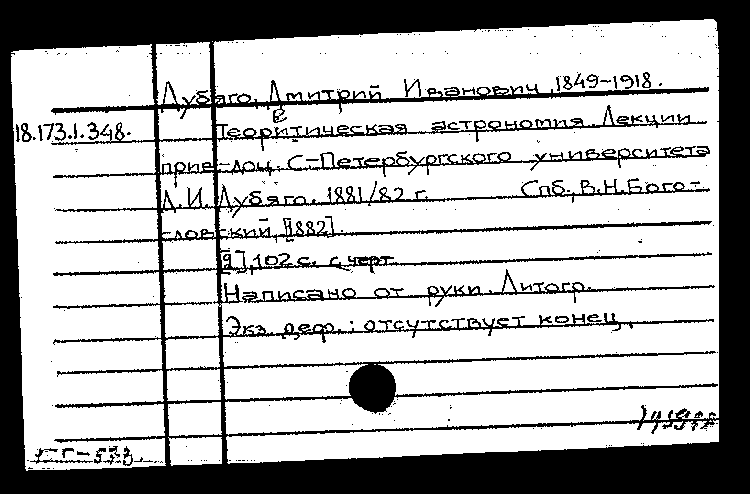 Дубяго, Дмитрий Иванович, 1849-1918.
18.173.1.348. Теоритическая астрономия. Лекции
е
прив-доц. С-Петербургского университета
Д. И. Дубяго. 1881/82 г. Спб., В.Н.Бого-
словский, [1882].
102 с. с черт.
Написано от руки. Литогр.
Экз. деф.: отсутствует конец.